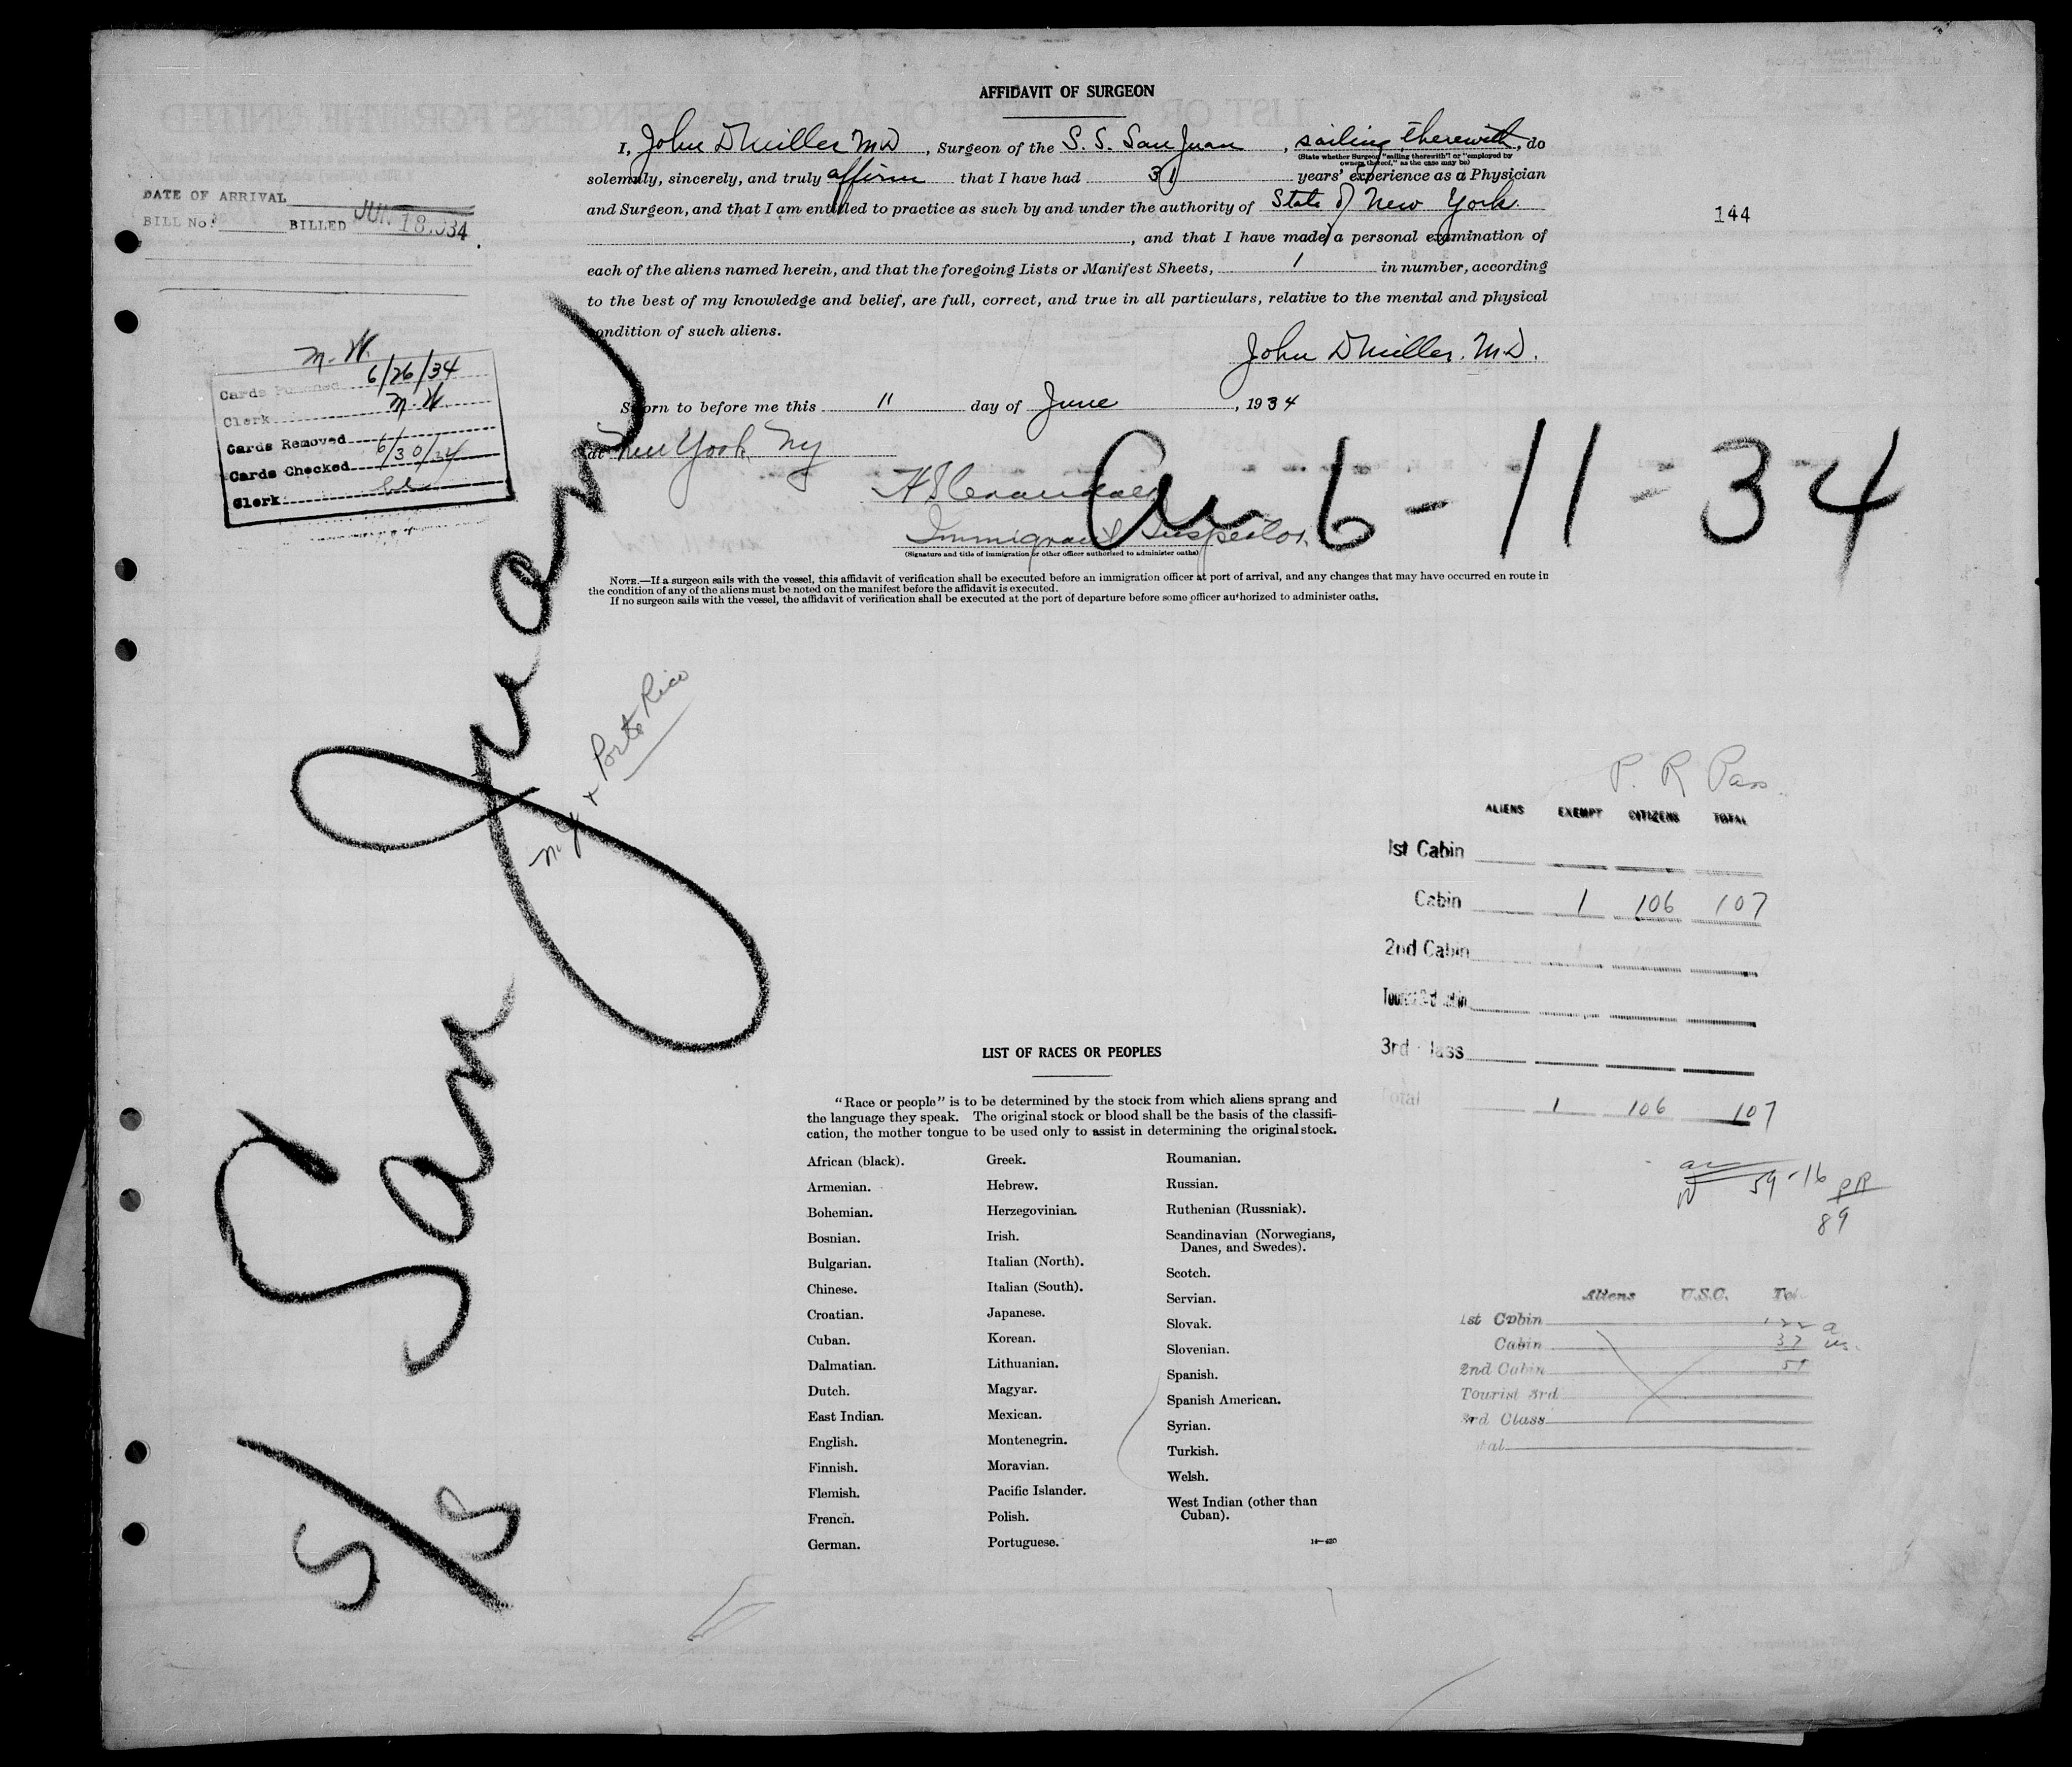 AFFIDAVIT OF SURGEON
I, John D Miller MD, Surgeon of the S. S. San Juan, sailing therewith, do
(State whether Surgeon "sailing therewith" or "employed by
owners thereof," as the case may be)
solemnly, sincerely, and truly affirm that I have had 31 years' experience as a Physician
and Surgeon, and that I am entitled to practice as such by and under the authority of State of New York
, and that I have made a personal examination of
each of the aliens named herein, and that the foregoing Lists or Manifest Sheets, 1 in number, according
to the best of my knowledge and belief, are full, correct, and true in all particulars, relative to the mental and physical
condition of such aliens.
John D Miller. M.D.
Sworn to before me this 11 day of June, 1934
at New York, NY
Immigrant Inspector.
(Signature and title of immigration or other officer authorized to administer oaths)
NOTE.—If a surgeon sails with the vessel, this affidavit of verification shall be executed before an immigration officer at port of arrival, and any changes that may have occurred en route in
the condition of any of the aliens must be noted on the manifest before the affidavit is executed.
If no surgeon sails with the vessel, the affidavit of verification shall be executed at the port of departure before some officer authorized to administer oaths.
DATE OF ARRIVAL
BILL No. BILLED JUN 18.1934
144
M. W.
Cards Punched 6/26/34
Clerk M. W.
Cards Removed
Cards Checked 6/30/34
Clerk
Arr 6-11-34
S/S San Juan
N.Y. + Porto Rico
P. R Pass.
ALIENS EXEMPT CITIZENS TOTAL
1st Cabin
Cabin 1 106 107
2nd Cabin
Tourist 3rd Cabin
3rd Class
Total 1 106 107
59-16 PR
89
Aliens U.S.C. Tot.
1st Cabin
Cabin 37
2nd Cabin
Tourist 3rd
3rd Class
Total
LIST OF RACES OR PEOPLES
"Race or people" is to be determined by the stock from which aliens sprang and
the language they speak. The original stock or blood shall be the basis of the classifi-
cation, the mother tongue to be used only to assist in determining the original stock.
African (black).
Armenian.
Bohemian.
Bosnian.
Bulgarian.
Chinese.
Croatian.
Cuban.
Dalmatian.
Dutch.
East Indian.
English.
Finnish.
Flemish.
French.
German.
Greek.
Hebrew.
Herzegovinian.
Irish.
Italian (North).
Italian (South).
Japanese.
Korean.
Lithuanian.
Magyar.
Mexican.
Montenegrin.
Moravian.
Pacific Islander.
Polish.
Portuguese.
Roumanian.
Russian.
Ruthenian (Russniak).
Scandinavian (Norwegians,
Danes, and Swedes).
Scotch.
Servian.
Slovak.
Slovenian.
Spanish.
Spanish American.
Syrian.
Turkish.
Welsh.
West Indian (other than
Cuban).